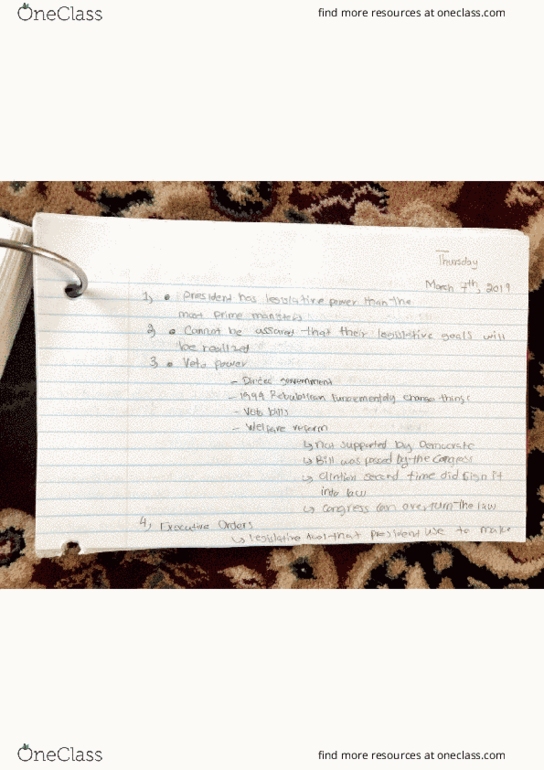 OneClass
find more resources at oneclass.com
Thursday
March 7th, 2019
1, • President has legislative power than the
most prime
2) • Cannot be assured that their legislative goals will
be
3, • Veto power
- government
- 1994 change things
- bills
- Welfare reform
↳ Not supported by Democrate
↳ Bill was passed by the Congress
↳ second time did sign it
into law
↳ Congress can overturn the law
4, Executive Orders
↳ legislative tool that president use to make
OneClass
find more resources at oneclass.com